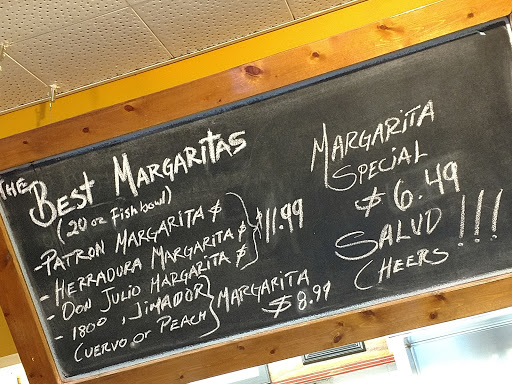 THE BEST MARGARITAS
(20 oz Fishbowl)
- PATRON MARGARITA $
- HERRADURA MARGARITA $
- DON JULIO MARGARITA $
$11.99
- 1800, JIMADOR
CUERVO or PEACH
MARGARITA
$8.99
MARGARITA
SPECIAL
$6.49
SALUD !!!
CHEERS